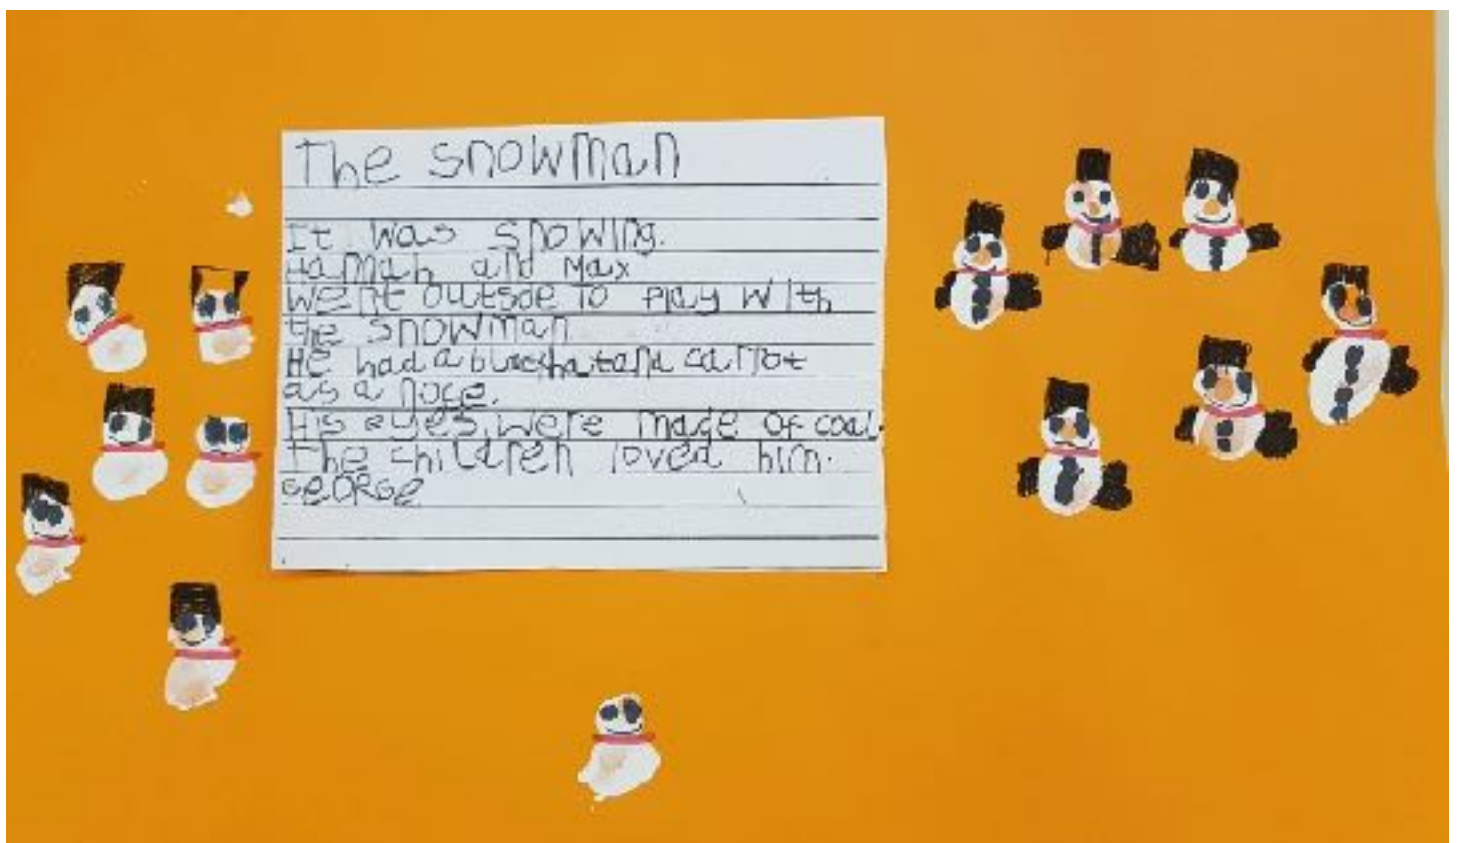 The snowman
It was snowing.
Hannah and Max
went outsde to play with
the snowman
He had a black hat and carrot
as a nose.
His eyes were made of coal.
The children loved him.
GeORGe